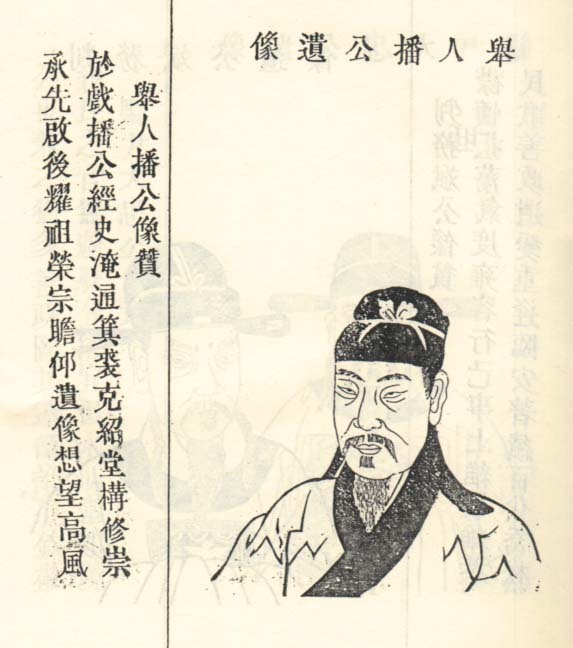 舉人播公遺像
舉人播公像贊
於戲播公經史淹通箕裘克紹堂構修崇
承先啟後耀祖榮宗瞻仰遺像想望高風